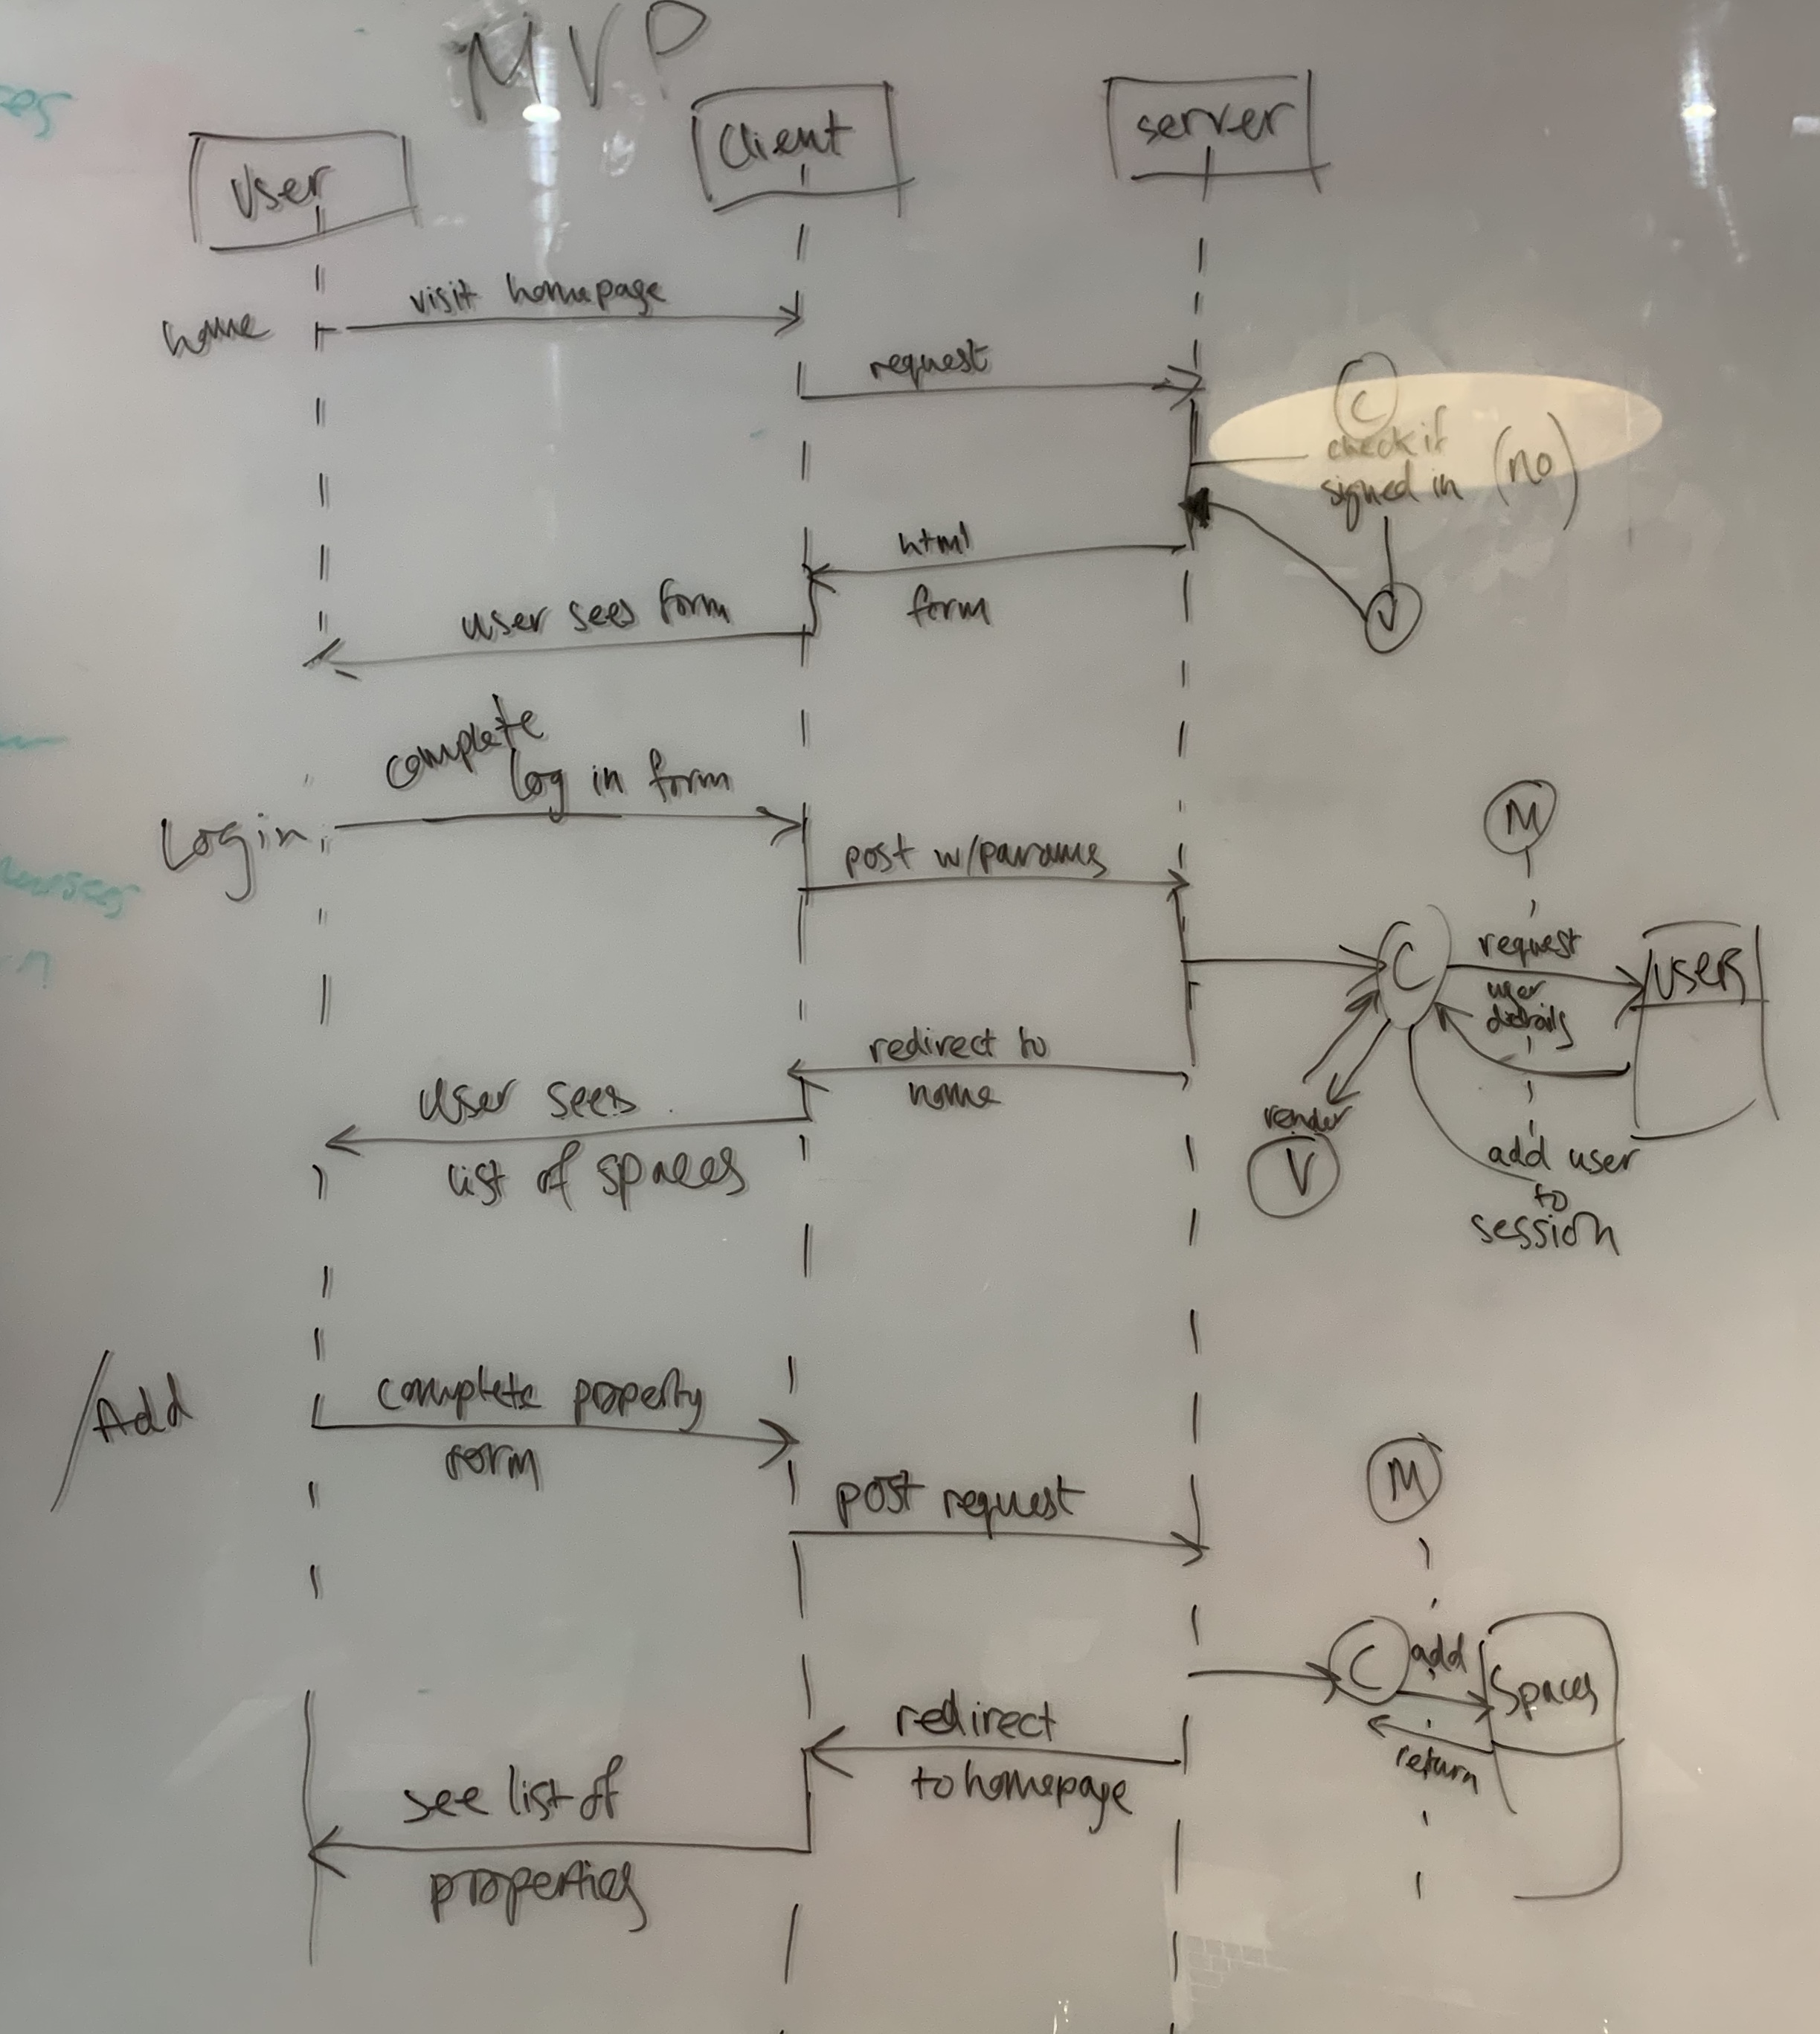 MVP
User
Client
server
home
visit homepage
request
C
check if
signed in (no)
html
form
V
user sees form
complete
log in form
Login
post w/params
M
C
request
user
details
USER
redirect to
home
render
V
add user
to
session
User sees
list of spaces
/Add
complete property
form
post request
M
C
add
Spaces
return
redirect
to homepage
see list of
properties